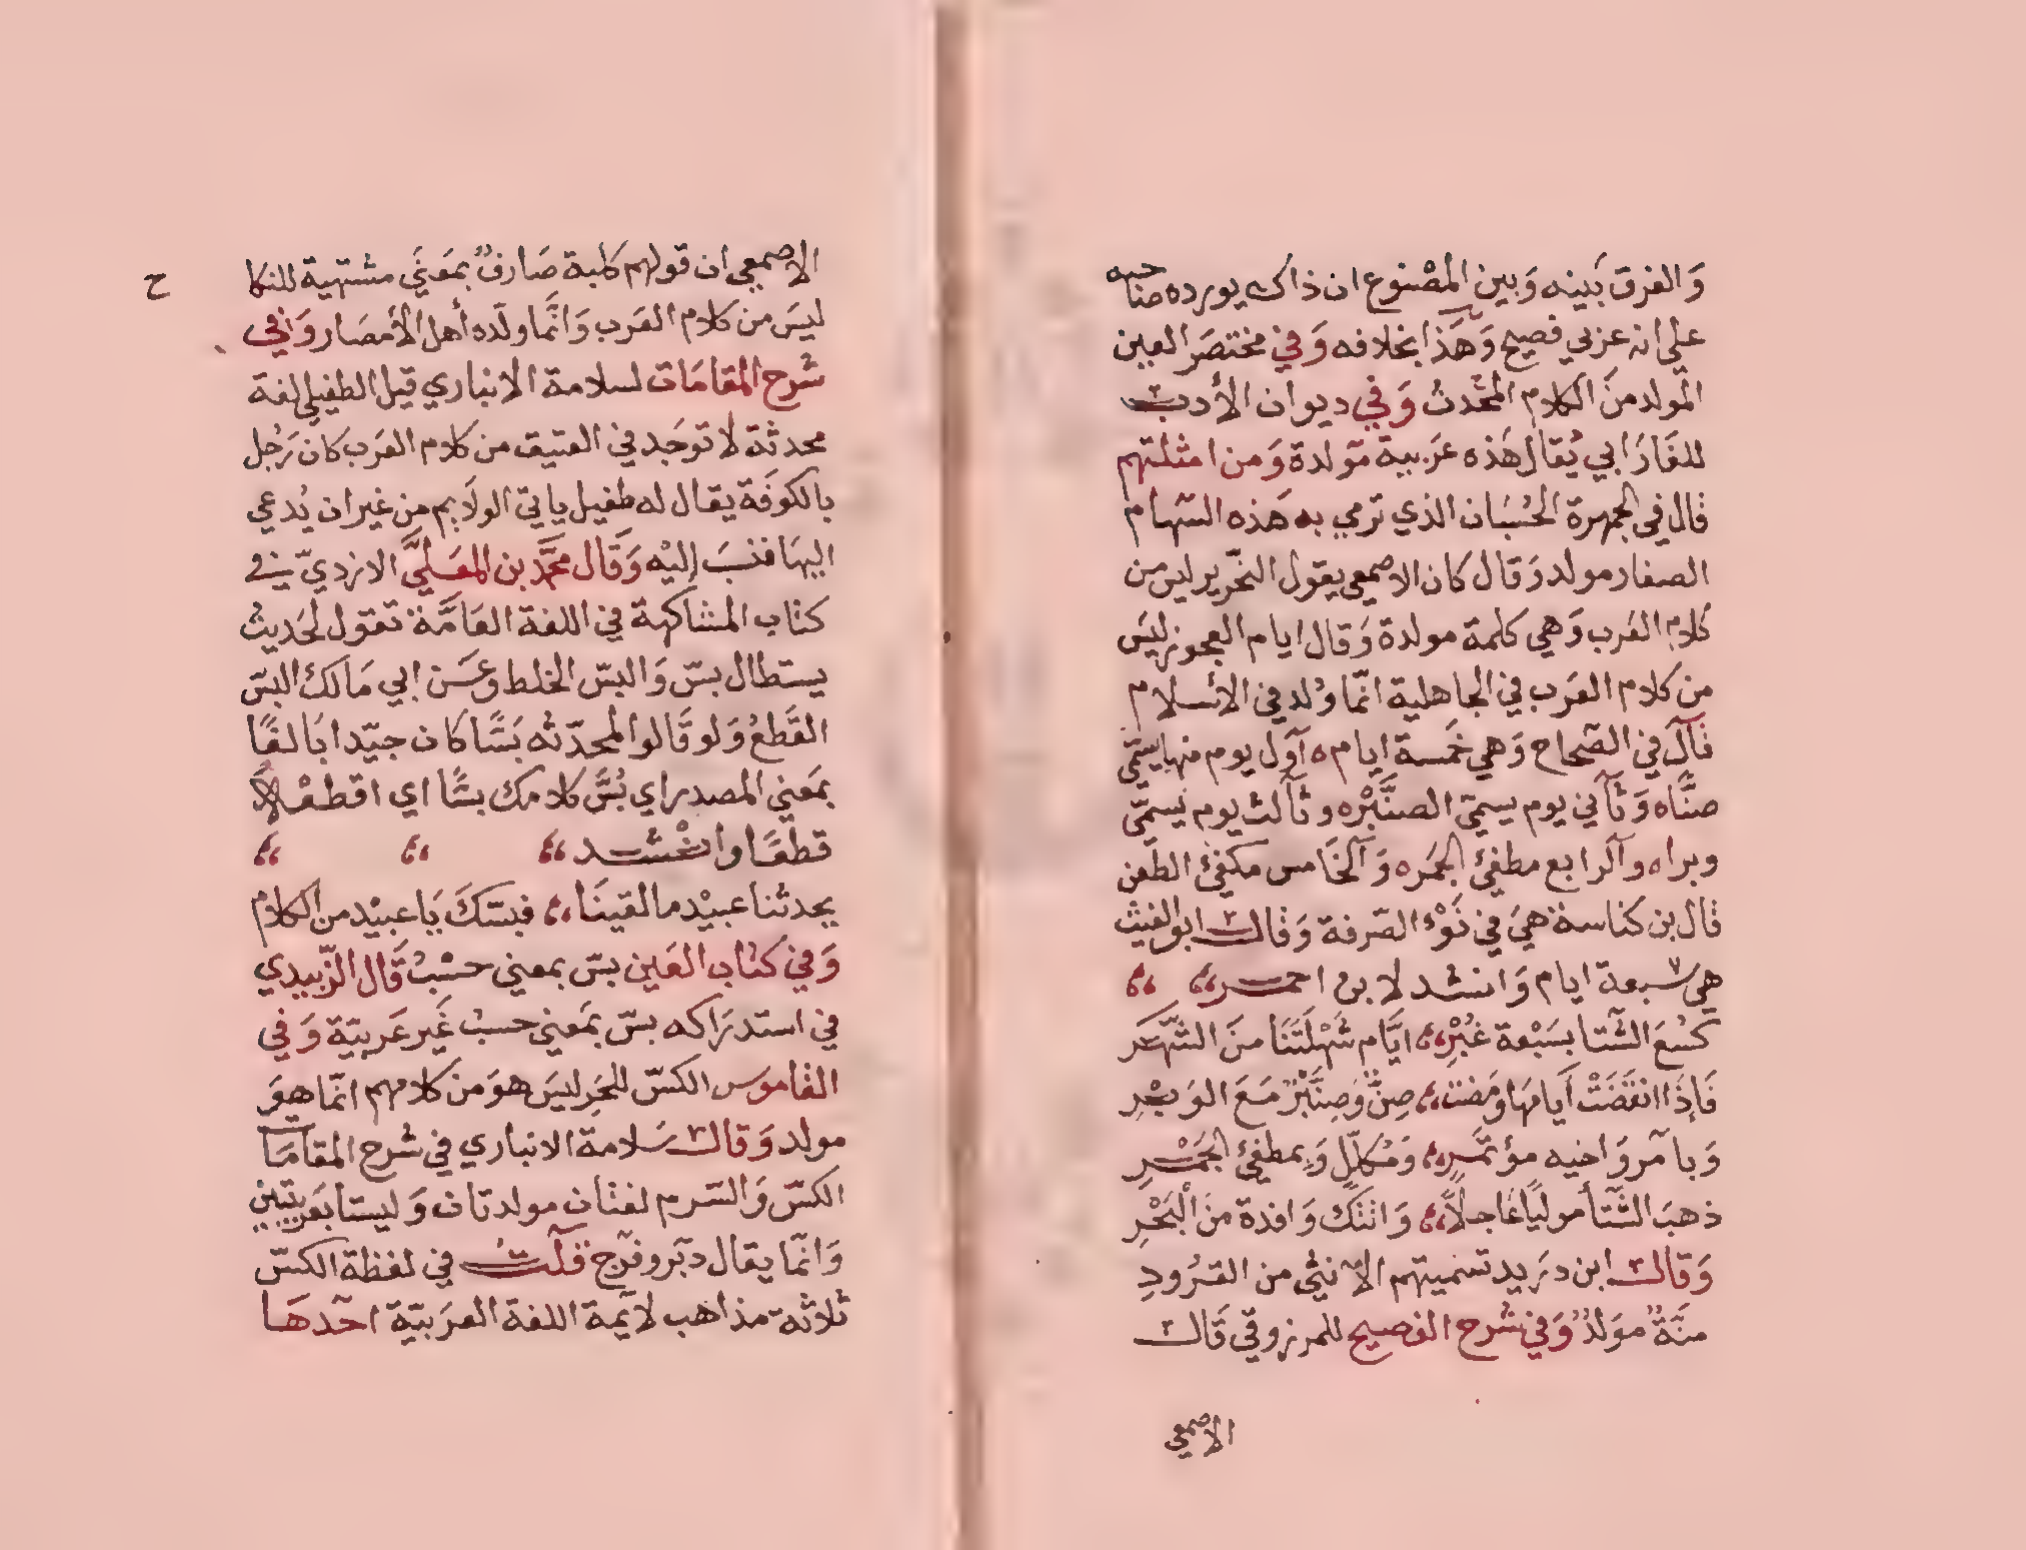 وَالفرق بَينه وَبين المصْنوع ان ذاك يورده صاحبه
علي انه عربي فصيح وَهَذا بخلافه وَفي مختصَر العين
المولد منَ الكلام المحْدثُ وَفي ديوان الأدب
للفَارَابي يُقال هَذه عَربية مَولدة وَمن امثلتهم
قال في الجمهرة الحُسْبَان الذي ترمي به هَذه السّهام
الصغار مولد وَقال كان الاصمعي يقول النحْرير ليس من
كَلام العَرب وَهي كلمة مولدة وَقال ايام العجوز ليسَ
من كلام العَرب في الجاهلية انّما وُلد في الاسلام
قالَ في الصّحاح وَهي خمَسة ايام ه آوّل يوم منها يسَمّي
صنَّاه وَثآني يوم يسميّ الصنَّبْره وثآلث يوم يُسَمّي
وبراه وآلرابع مطفئ الجمَره وَآلخَامس مكفئ الظعْن
قال بن كناسة هيَ في نَوْء الصّرفة وَقالـــ ابو الغيث
هي سبعة ايام وَانشد لابن احمــر
كسُعَ الشّتا بسَبْعة غُبْرِ ايَّام شَهْلَتنَا منَ الشّهَر
فَإذَا انقَضَتْ أيامهَا وَمَضت صِنٌّ وَصِنَّبْرٌ مَعَ الوَبْرِ
وَبآمر وَاخيه مؤتمَرٍ وَمُعَلّلٍ وَبمطفئ الجمْـرِ
ذهبَ الشّتأ مولياً عَاجلاً وَاتتكَ وَافدة منَ الْبَحْرِ
وَقالـــ ابن دَريد تسْميتهم الآنثي من القرُودِ
منّةٌ موَلدٌ وَفي شرح الفصيح للمرزوقي قَالـــ
الاصمعي
الاصمعي ان قولهم كلبة صَارفٌ بمَعنَي مشتهية للنكا
ح
ليسَ من كلام العَرب وَانَّما ولّده أهل الأمصَار وَفي
شرح المقامَات لسلامة الانباري قيل الطفيلي لغة
محدثة لا توجَد في العتيق من كلام العَرب كان رَجُل
بالكوفَة يقال له طفيل ياتي الولايم من غير ان يُدعي
اليهَا فنسَب إليْه وَقَال محمَّد بن المعَلّيَ الازديّ في
كتاب المشاكهة في اللغة العَامَّة تقول لحَديث
يستطال بسّ وَالبسّ الخلط وعَــن ابي مَالك البسّ
القَطعُ وَلو قَالوا لمحدّثه بَسًّا كان جيّدا بَالغًا
بمَعني المصدر اي بُسَّ كلامك بسًّا اي اقطعْـه
قطعًا وانْشـــد
يحدثنا عبيْد ما لقينَا فبسّكَ يَا عبيْد من الكلام
وَفي كتاب العَين بسّ بمعني حسْبُ قَال الزّبيدي
في استدرَاكه بسّ بمَعني حسبُ غَير عَربيّة وَفي
القاموس الكسّ للحَرِ ليسَ هوَ من كلامهم انّما هوَ
مولد وَقالـــ سَلامة الانباري في شرح المقامَات
الكسّ وَالسّرم لغتان مولدتان وَليستا بعَربيّتين
وَانّما يقال دبر وفرج قلـــتُ في لفظة الكسّ
ثلاثة مذاهب لايّمة اللغة العرَبيّة احَدهَــا